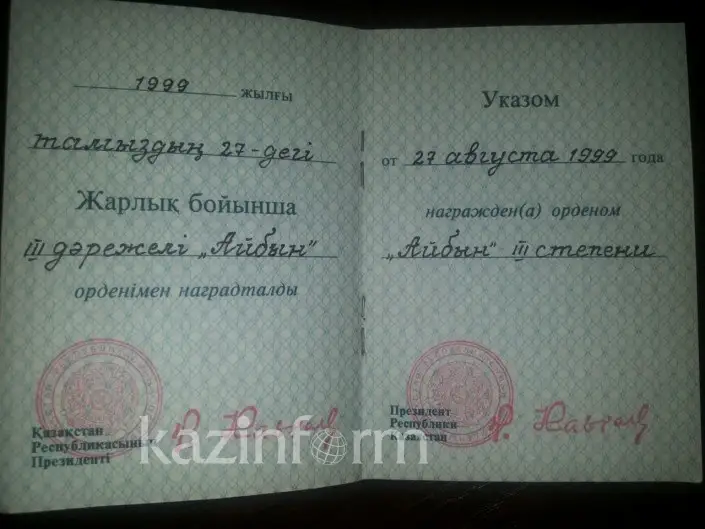 1999 жылғы
тамыздың 27-дегі
Жарлық бойынша
III дәрежелі „Айбын"
орденімен наградталды
Қазақстан
Республикасының
Президенті
Указом
от 27 августа 1999 года
награжден(а) орденом
„Айбын" III степени
Президент
Республики
Казахстан
kazinform